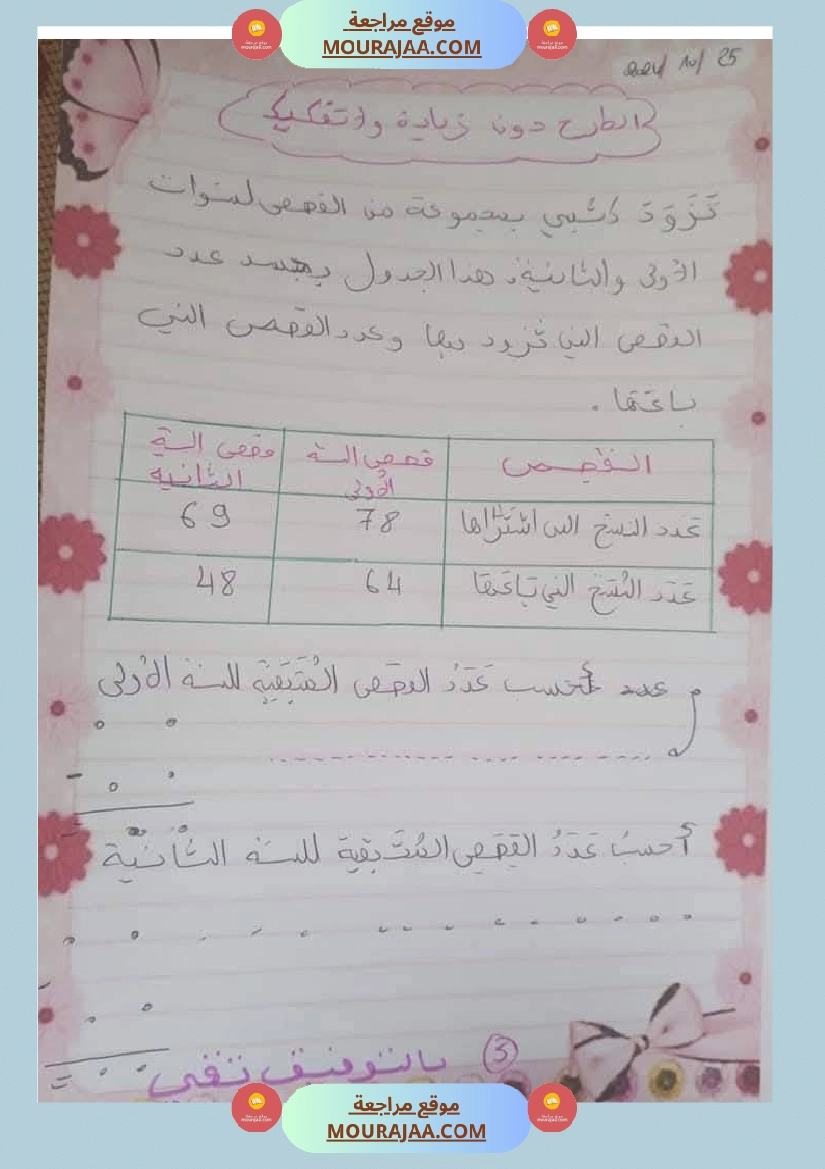 موقع مراجعة
MOURAJAA.COM
2024/ 10/ 25
الطرح دون زيادة ولا تفكيك
تَزَوَّدَ كتبي بمجموعة من القصص لسنوات
الأولى والثانية. هذا الجدول يجسد عدد
القصص التي تزود بها وعدد القصص التي
باعها .
القصص
قصص السنة الأولى
قصص السنة الثانية
عدد النسخ التي اشتراها
78
69
عَدَد النُّسَخِ التي بَاعَهَا
64
48
عدد أحسب عَدَدُ القصص المُتَبَقِيَّةِ للسنة الأولى
-
أحسبُ عَدَدُ القِصَصِ المُتَبقية للسنة الثانية
-
=
بالتوفيق
3
موقع مراجعة
MOURAJAA.COM